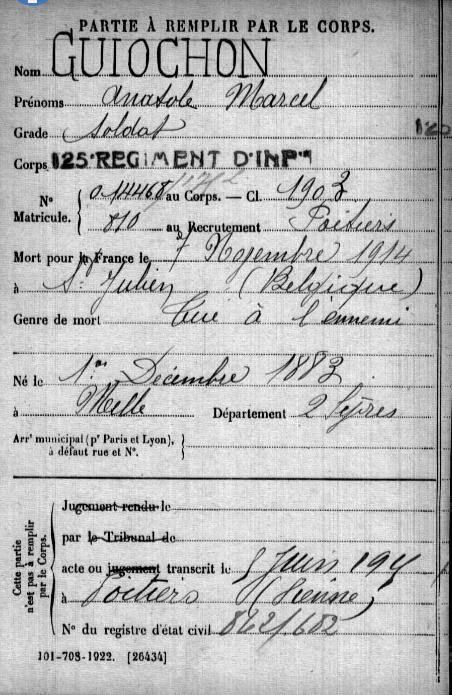 PARTIE À REMPLIR PAR LE CORPS.
Nom GUIOCHON
Prénoms Anatole Marcel
Grade Soldat
Corps 125e REGIMENT D'INFie
N° Matricule. { 014468 au Corps. — Cl. 1903
810 au Recrutement Poitiers
Mort pour la France le 7 Novembre 1914
à St Julien (Belgique)
Genre de mort Tué à l'ennemi
Né le 1er Décembre 1883
à Melle Département 2 Sèvres
Arrt municipal (pr Paris et Lyon), à défaut rue et N°.
Cette partie n'est pas à remplir par le Corps.
Jugement rendu le
par le Tribunal de
acte ou jugement transcrit le 5 Juin
à Poitiers (Vienne)
N° du registre d'état civil 862/685
101-708-1922. [26434]